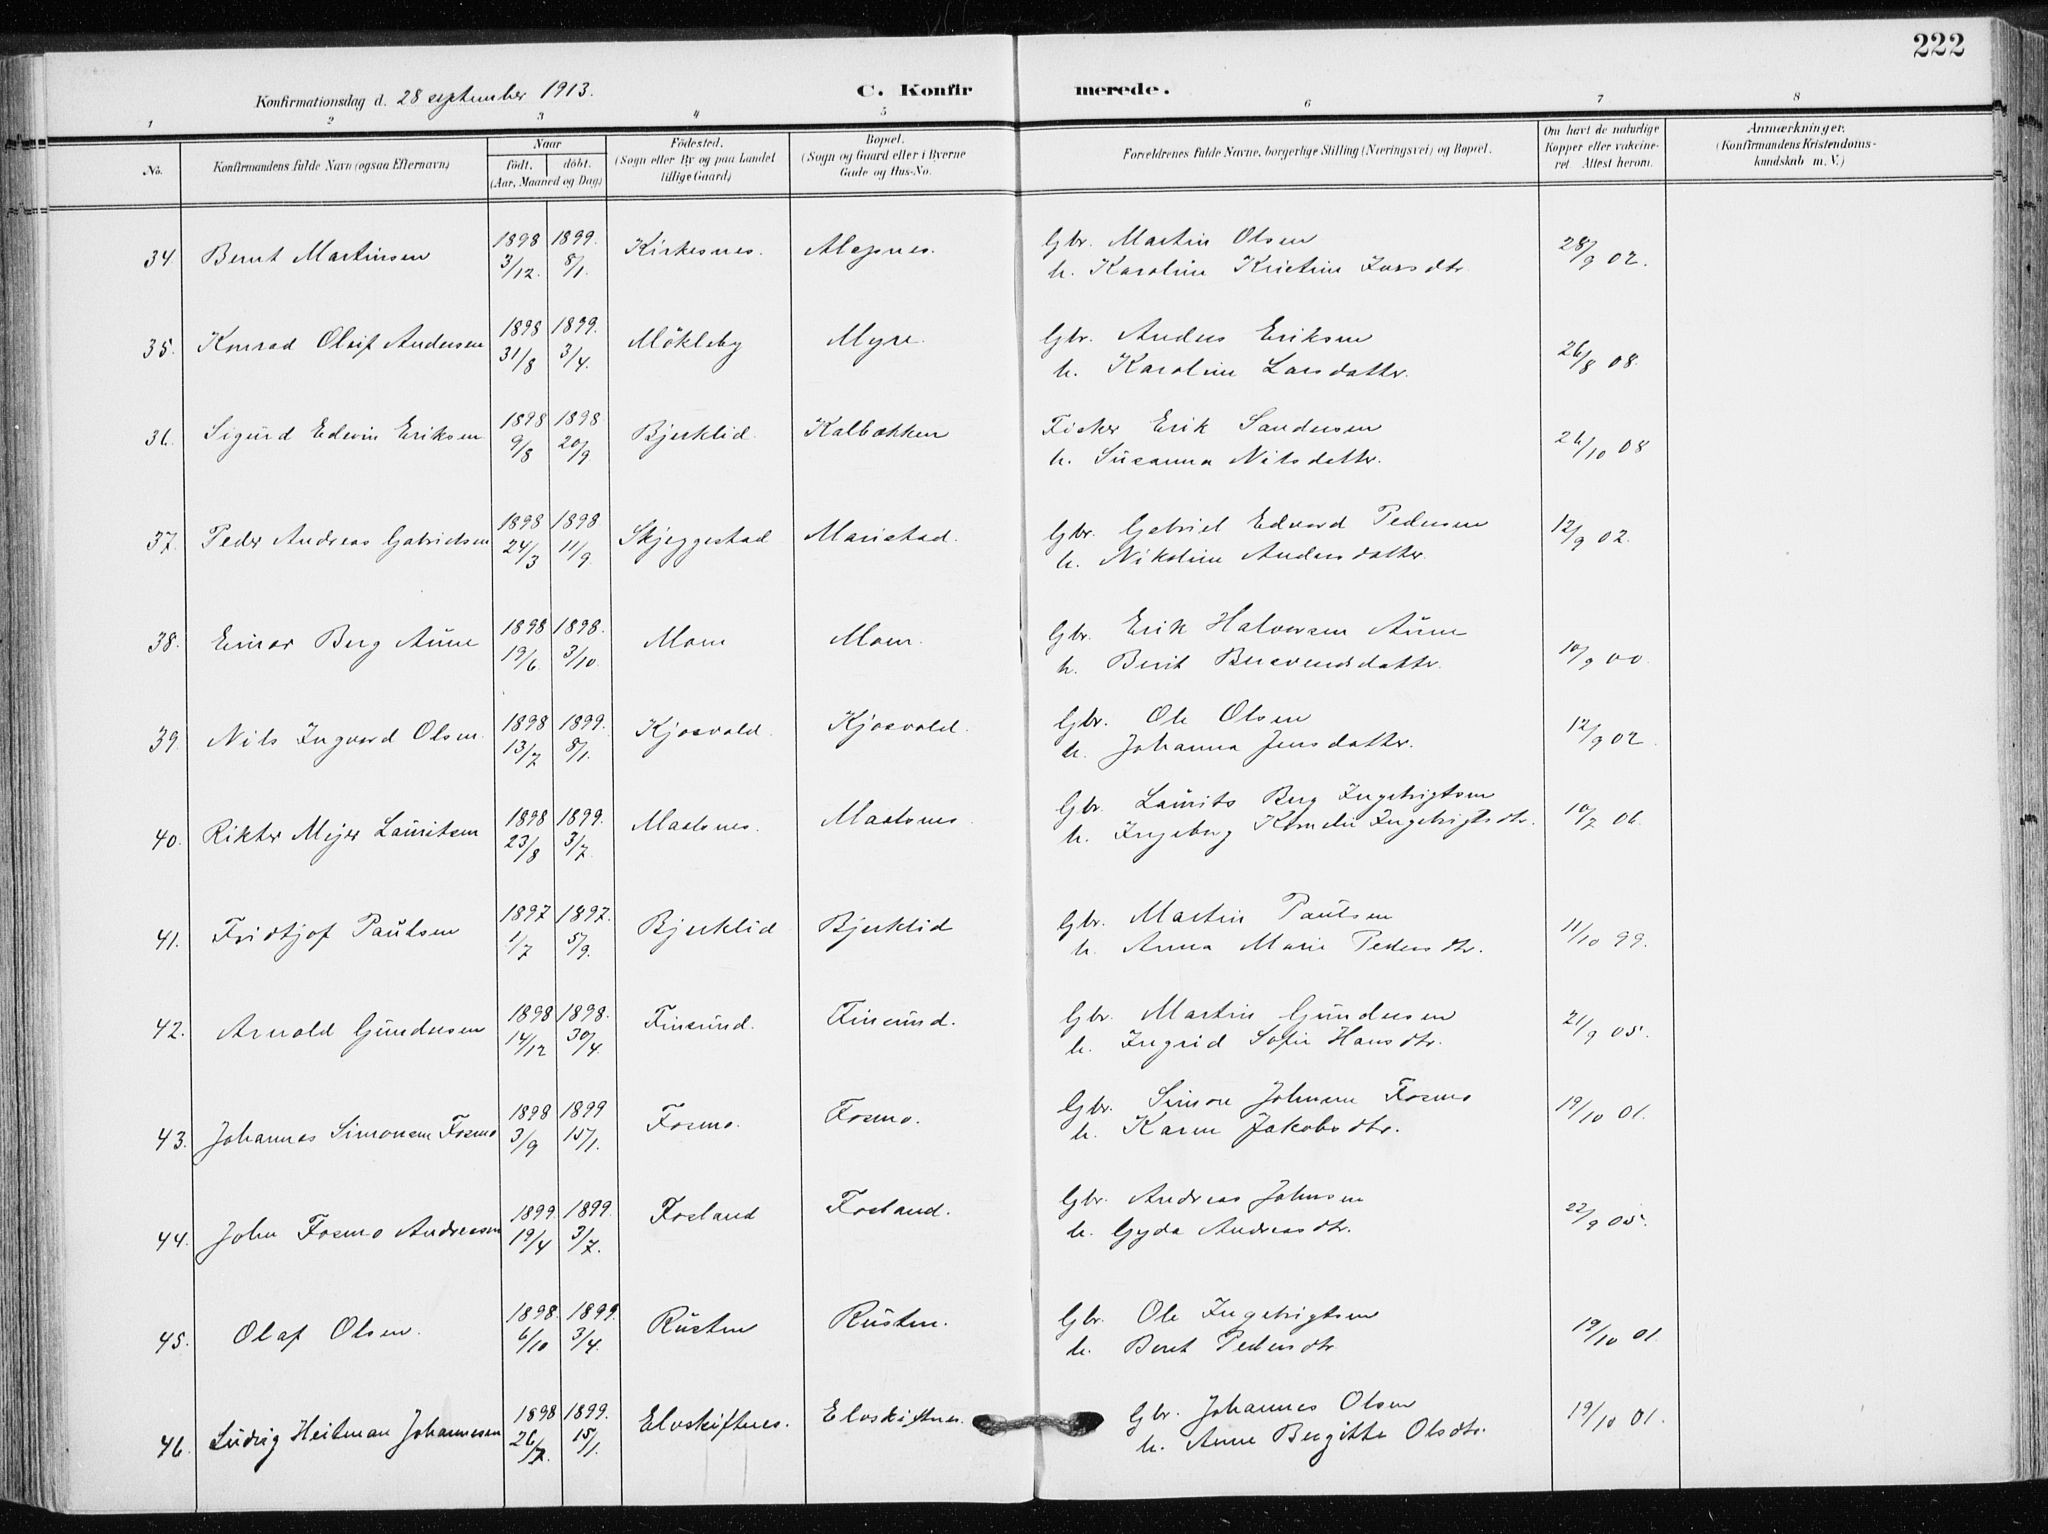 222
Konfirmationsdag d. 28 september 1913. C. Konfirmerede.
1 2 3 4 5 6 7 8
No. Konfirmandens fulde Navn (ogsaa Efternavn) Naar født. døbt. (Aar, Maaned og Dag) Fødested. (Sogn eller By og paa Landet tillige Gaard) Bopæl. (Sogn og Gaard eller i Byerne Gade og Hus-No. Forældrenes fulde Navne, borgerlige Stilling (Næringsvei) og Bopæl. Om havt de naturlige Kopper eller vakcineret Attest herom. Anmærkninger. (Konfirmandens Kristendomskundskab m. V.)
34. Bernt Martinsen 1898 3/12. 1899. 8/1. Kirkesnes. Alapnes. Gbr. Martin Olsen 28/9 02.
h. Karoline Kristine
35. Konrad Oluf Andersen 1898 31/8 1899. 3/4. Møkleby Myre. Gbr. Anders Eriksen 26/8 08.
h. Karoline Larsdatter.
36. Sigurd Edevin Eriksen 1898 9/8 1898 20/9 Bjerklid. Kalbakken Fisker Erik Sandersen 26/10 08
h. Susanna Nilsdatter.
37. Peder Andreas Gabrielsen 1898 24/3 1898 11/9. Skjeggestad Maristad. Gbr. Gabriel Edvard Pedersen 12/9 02.
h. Nikoline Andersdatter.
38. Einar Berg Aune 1898 19/6 1898. 3/10. Moen Moen. Gbr. Erik Halvorsen Aune 10/9 00.
h. Berit
39. Nils Ingvard Olsen. 1898 13/7 1899. 8/1. Kjosvold. Kjosvold. Gbr. Ole Olsen 12/9 02.
h. Johanna Jensdatter.
40. Rikter Mejer Lauritsen 1898 23/8 1899. 3/7. Maalsnes. Maalsnes. Gbr. Laurits Berg Ingebrigtsen 10/7 06.
h. Ingeborg Kornelie Ingebrigtsdtr.
41. Fridtjof Paulsen 1897 1/7 1897. 5/9. Bjerklid Bjerklid Gbr. Martin Paulsen 11/10 99.
h. Anna Marie Pedersdtr.
42. Arnold Gundersen 1898 14/12 1898. 30/4. Finsund. Finsund. Gbr. Martin Gundersen 21/9 05.
h. Ingrid Sofie Hansdtr.
43. Johannes Simonsen Fosmo 1898 3/9 1899 15/1. Fosmo. Fosmo. Gbr. Simon Johnsen Fosmo 19/10 01.
h. Karen Jakobsdtr.
44. John Fosmo Andreassen 1899. 19/4 1899. 3/7. Fosland Fosland. Gbr. Andreas Johnsen 22/9 05.
h. Gyda Andreasdtr.
45. Olaf Olsen. 1898. 6/10 1899. 3/4. Rusten Rusten. Gbr. Ole Ingebrigtsen 19/10 01.
h. Beret Pedersdtr
46. Ludvig Heitman Johannesen 1898 26/7. 1899. 15/1. Elvskiftnes. Elvskiftnes. Gbr. Johannes Olsen 19/10 01.
h. Anne Bergitte Olsdtr.